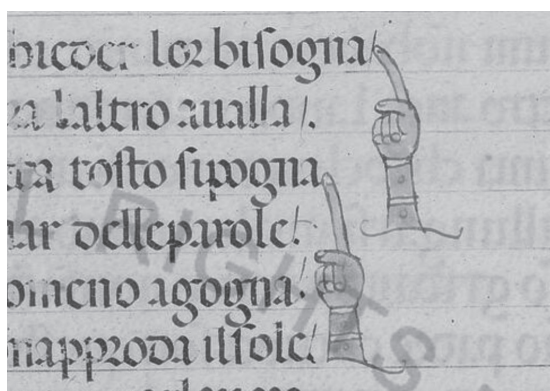 hieder lor biſogna/
laltro aualla/.
toſto ſipogna
delleparole/.
omeno agogna/.
napproda ilſole/.
RIGHTS